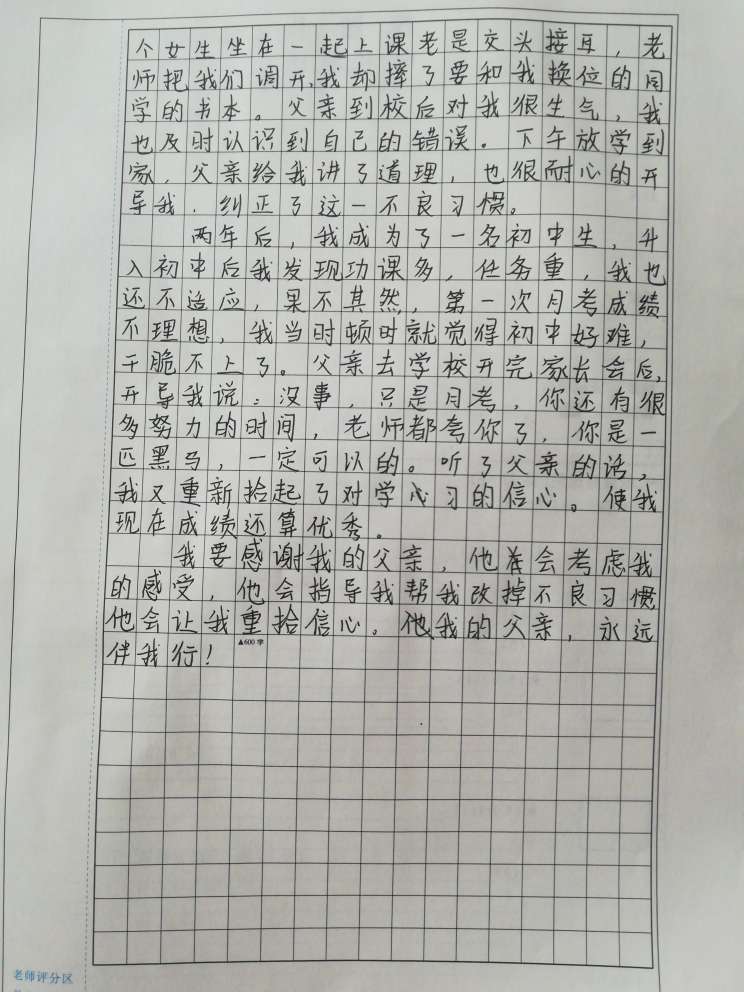 个女生坐在一起上课老是交头接耳，老
师把我们调开，我却摔了要和我换位的同
学的书本。父亲到校后对我很生气，我
也及时认识到自己的错误。下午放学到
家，父亲给我讲了道理，也很耐心的开
导我，纠正了这一不良习惯。
两年后，我成为了一名初中生，升
入初中后我发现功课多，任务重，我也
还不适应，果不其然，第一次月考成绩
不理想，我当时顿时就觉得初中好难，
干脆不上了。父亲去学校开完家长会后，
开导我说：没事，只是月考，你还有很
多努力的时间，老师都夸你了，你是一
匹黑马，一定可以的。听了父亲的话，
我又重新拾起了对学心习的信心。使我
现在成绩还算优秀。
我要感谢我的父亲，他会考虑我
的感受，他会指导我帮我改掉不良习惯
他会让我重拾信心。他我的父亲，永远
伴我行！
▲600字
老师评分区